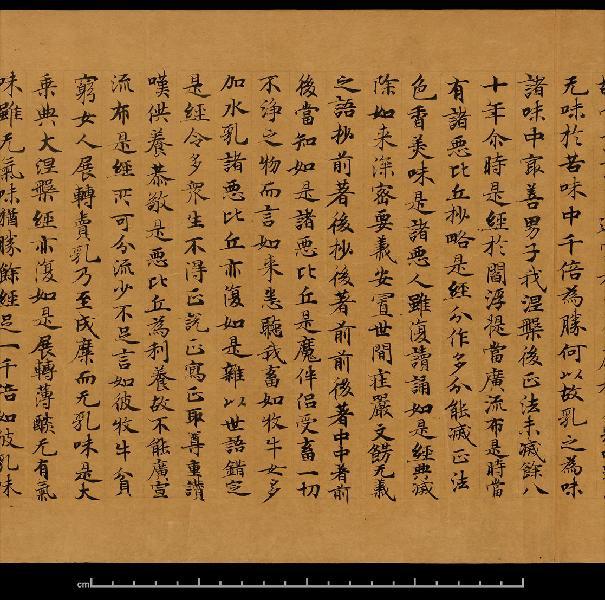 无味於苦味中千倍為勝何以故乳之為味
諸味中最善男子我涅槃後正法未滅餘八
十年尒時是經於閻浮提當廣流布是時當
有諸惡比丘抄略是經分作多分能滅正法
色香美味是諸惡人雖復讀誦如是經典滅
除如来深密要義安置世間庄嚴文餝无義
之語抄前著後抄後著前前後著中中著前
後當知如是諸惡比丘是魔伴侣受畜一切
不淨之物而言如来悉聽我畜如牧牛女多
加水乳諸惡比丘亦復如是雜以世語錯定
是經令多衆生不得正說正寫正取尊重讚
嘆供養恭敬是惡比丘為利養故不能廣宣
流布是經所可分流少不足言如彼牧牛貧
窮女人展轉賣乳乃至成糜而无乳味是大
乘典大涅槃經亦復如是展轉薄醈无有氣
味雖无氣味猶勝餘經足一千倍如彼乳味
cm